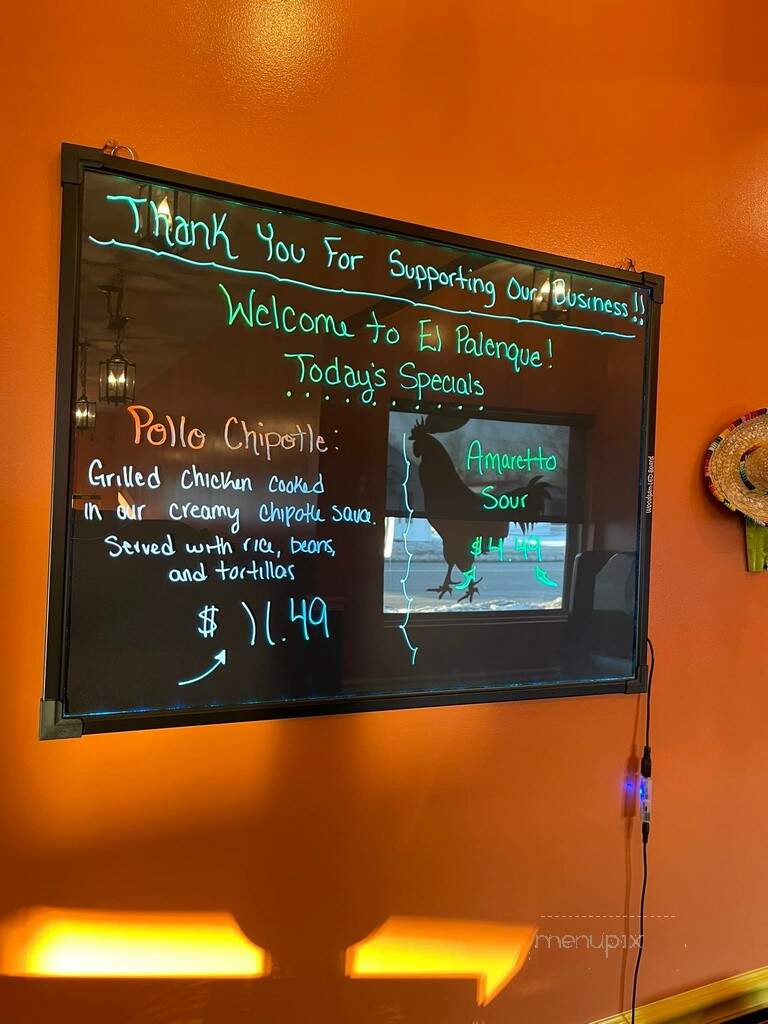 Thank You For Supporting Our Business!!
Welcome to El Palenque!
Today's Specials
Pollo Chipotle:
Grilled chicken cooked
in our creamy chipotle sauce.
Served with rice, beans,
and tortillas
$ 11.49
Amaretto
Sour
$4.49
Woodsam LED Board
menupix